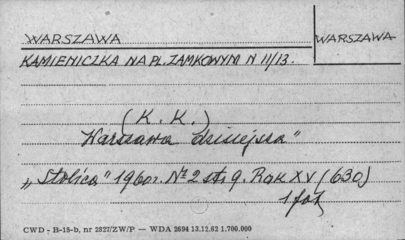 WARSZAWA
WARSZAWA
KAMIENICZKA NA PL. ZAMKOWYM N 11/13.
(K. K.)
Warszawa dzisiejsza"
„Stolica" 1960r. № 2 str 9. Rok XV (630)
1 fot
CWD - B-15-b, nr 2827/ZW/P — WDA 2694 13.12.62 1.700.000